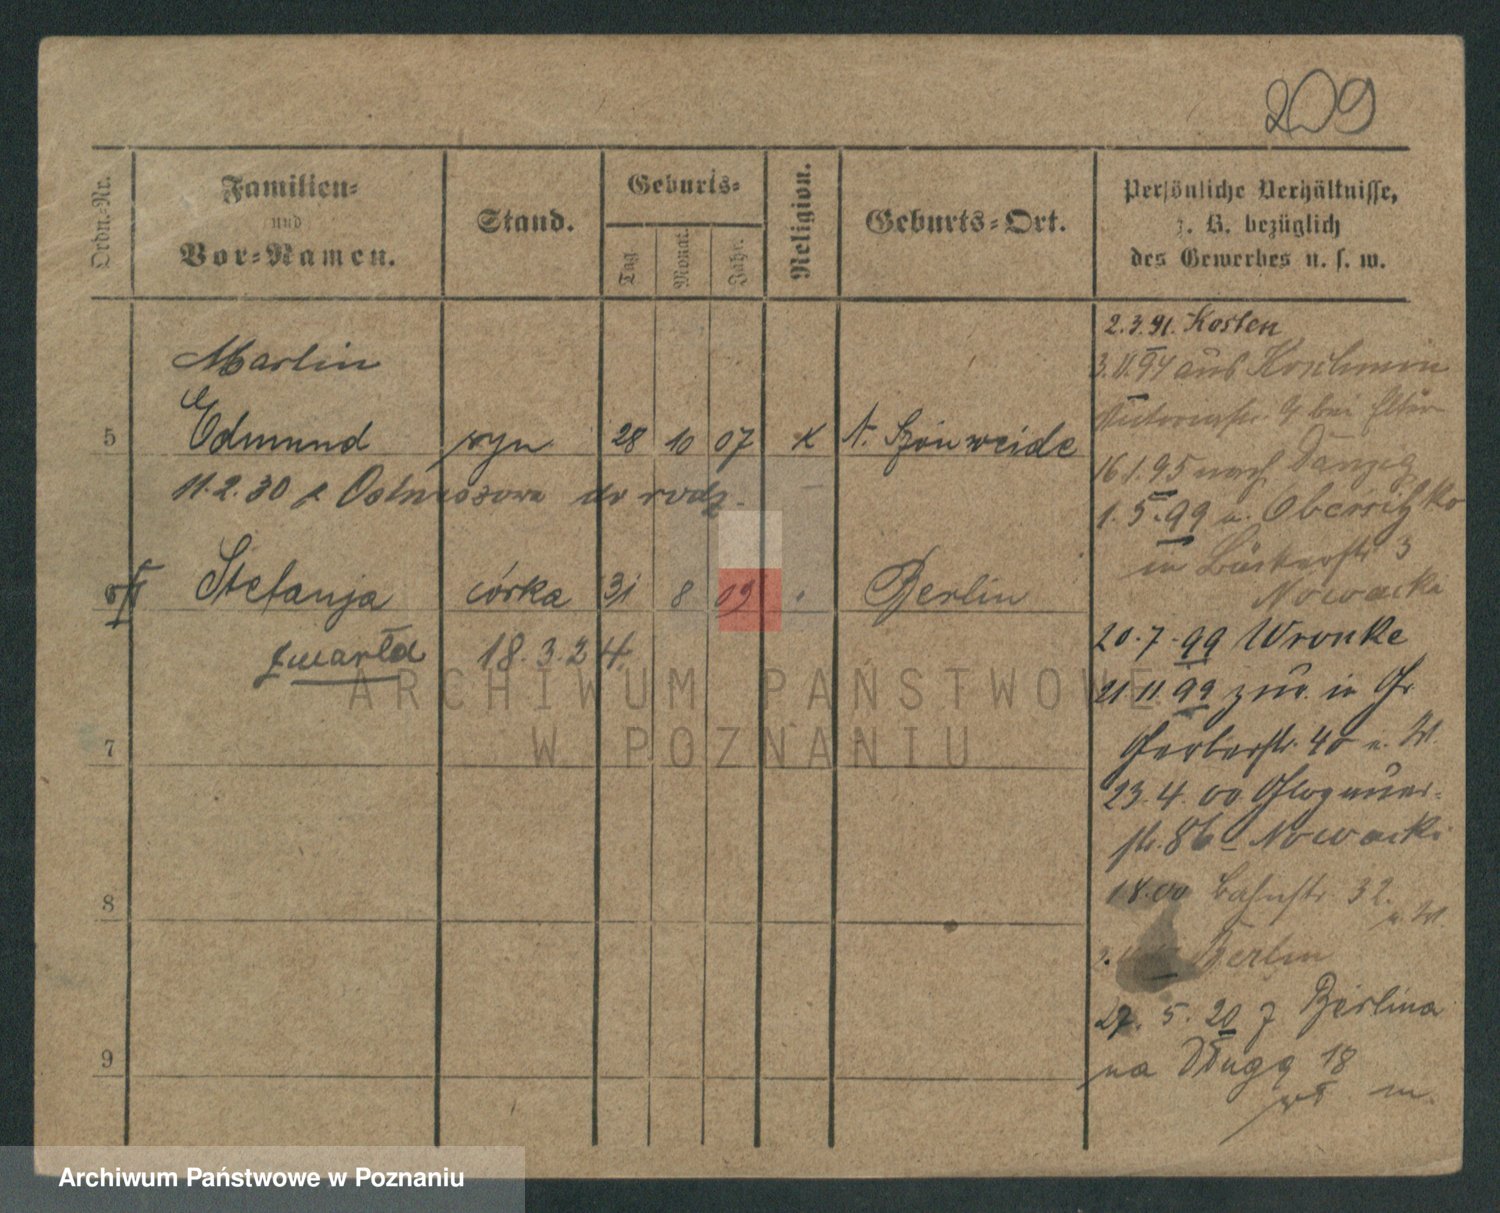 209
Ordn.-Nr.
Familien-
und
Vor-Namen.
Stand.
Geburts-
Tag.
Monat.
Jahr.
Religion.
Geburts-Ort.
Persönliche Verhältnisse,
z. B. bezüglich
des Gewerbes u. s. w.
Martin
5 Edmund syn 28 10 07 K N. Szönweide
11.2.30 z Ostrzeszowa do rodz.
6 Stefanja córka 31 8 09 Berlin
zmarła 18.3.24
7
8
9
2.3.91. Kosten
3.11.94 aus Koschmin
Victoriastr. bei Eltern
16.1.95 nach Danzig
1.5.99 v. Obersitzko
in Bäckerstr. 3
Nowacki
20.7.99 Wronke
21.11.99 zur. in Gr.
Gerberstr. 40 b. W.
23.4.00 Glogauer-
str. 86 Nowacki
1.8.00 Bahnstr. 32.
Berlin
27.5.20 z Berlina
na Długą 18
wł. m.
ARCHIWUM PAŃSTWOWE
W POZNANIU
Archiwum Państwowe w Poznaniu